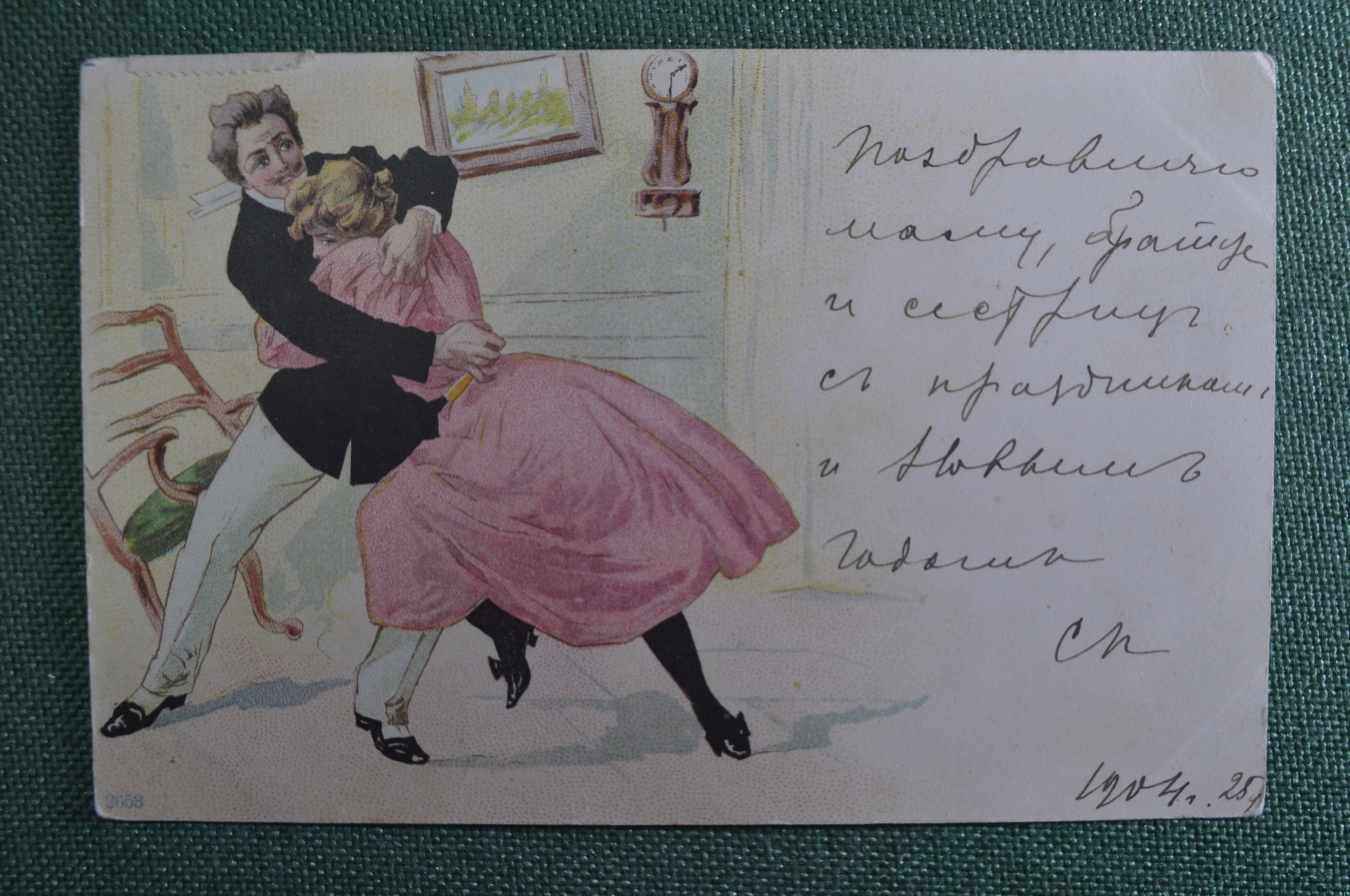 Поздровляю
маму, братце
и сестрицъ
съ праздникам
и Новымъ
годомъ
СК
1904 г. 25
2653